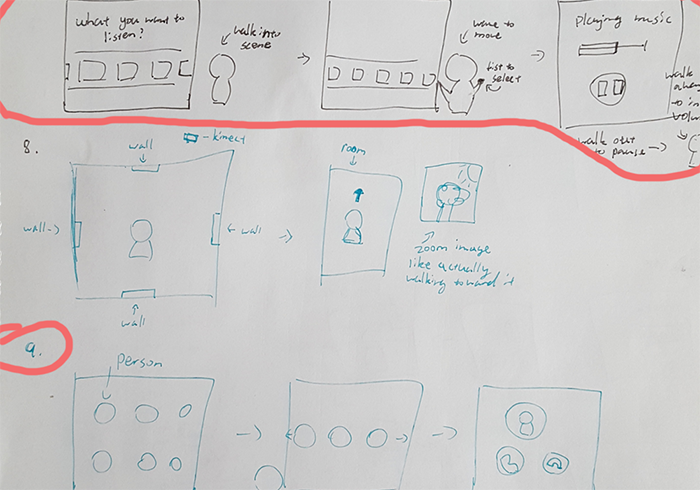 what you want to
listen?
walk into
scene
wave to
move
fist to
select
playing music
walk
to in
walk out
to pause
8.
wall
- kinect
wall
wall
wall
room
zoom image
like actually
walking toward it
9.
person